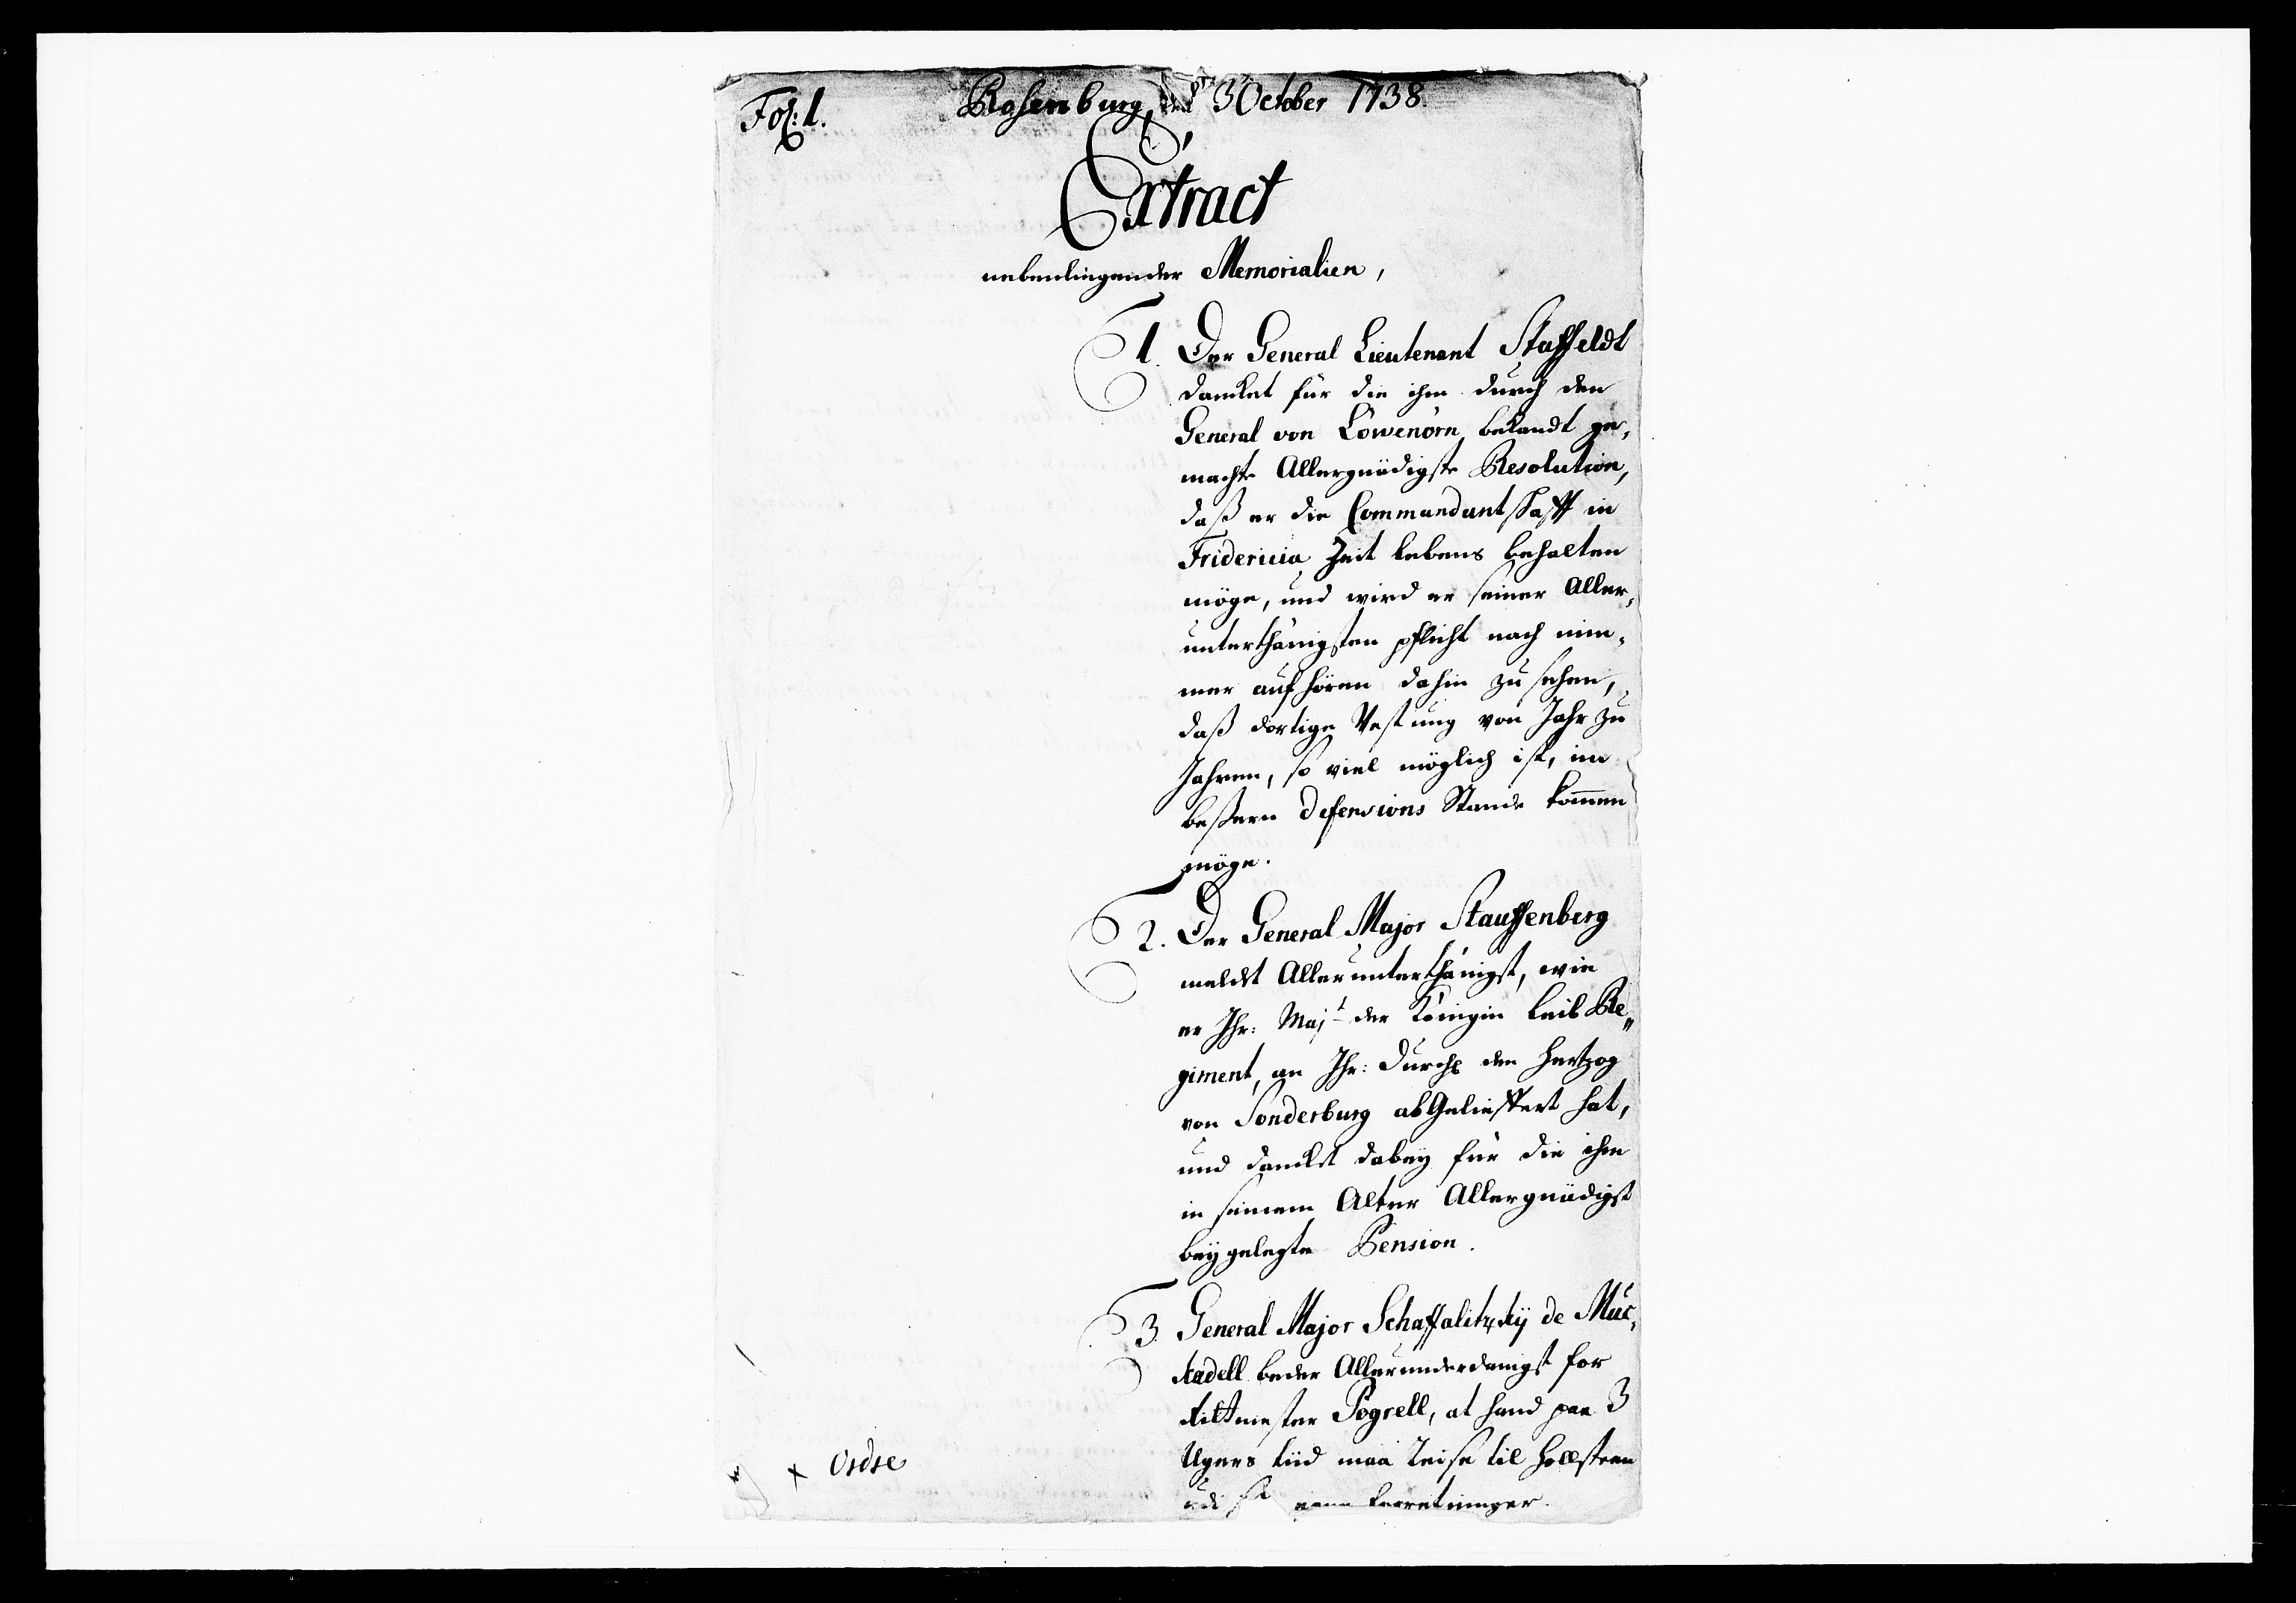 Fol: 1.
Rosenburg den 3 October 1738.
Extract
nebenliegender Memorialien,
1. Der General Lieutenant Staffeldt
dancket für die ihm durch den
General von Löwenörn bekandt ge,
machte Allergnädigste Resolution,
daß er die Commandantschafft in
Fridericia Zeit lebens behalten
möge, und wird er seiner Aller,
unterthänigsten pflicht nach nim,
mer aufhören dahin zu sehen,
daß dortige Vestung von Jahr zu
Jahren, so viel möglich ist, im
beßern defensions Stande kommen
möge.
2. Der General Major Stauffenberg
meldet Allerunterthänigst, wie
er Ihr: Maj^t der Königin Leib Re„
giment, an Ihr: Durchl den Hertzog
von Sonderburg abGelieffert hat,
und dancket dabey für die ihm
in seinem Alter Allergnädigst
beygelegte Pension.
3. General Major Schaffalitzkij de Muc,
kadell beder Allerunderdanigst for
Ritmester Pogrell, at hand paa 3
Ugers tiid maa Reise til Hollsteen
udi forretninger.
x Ordre